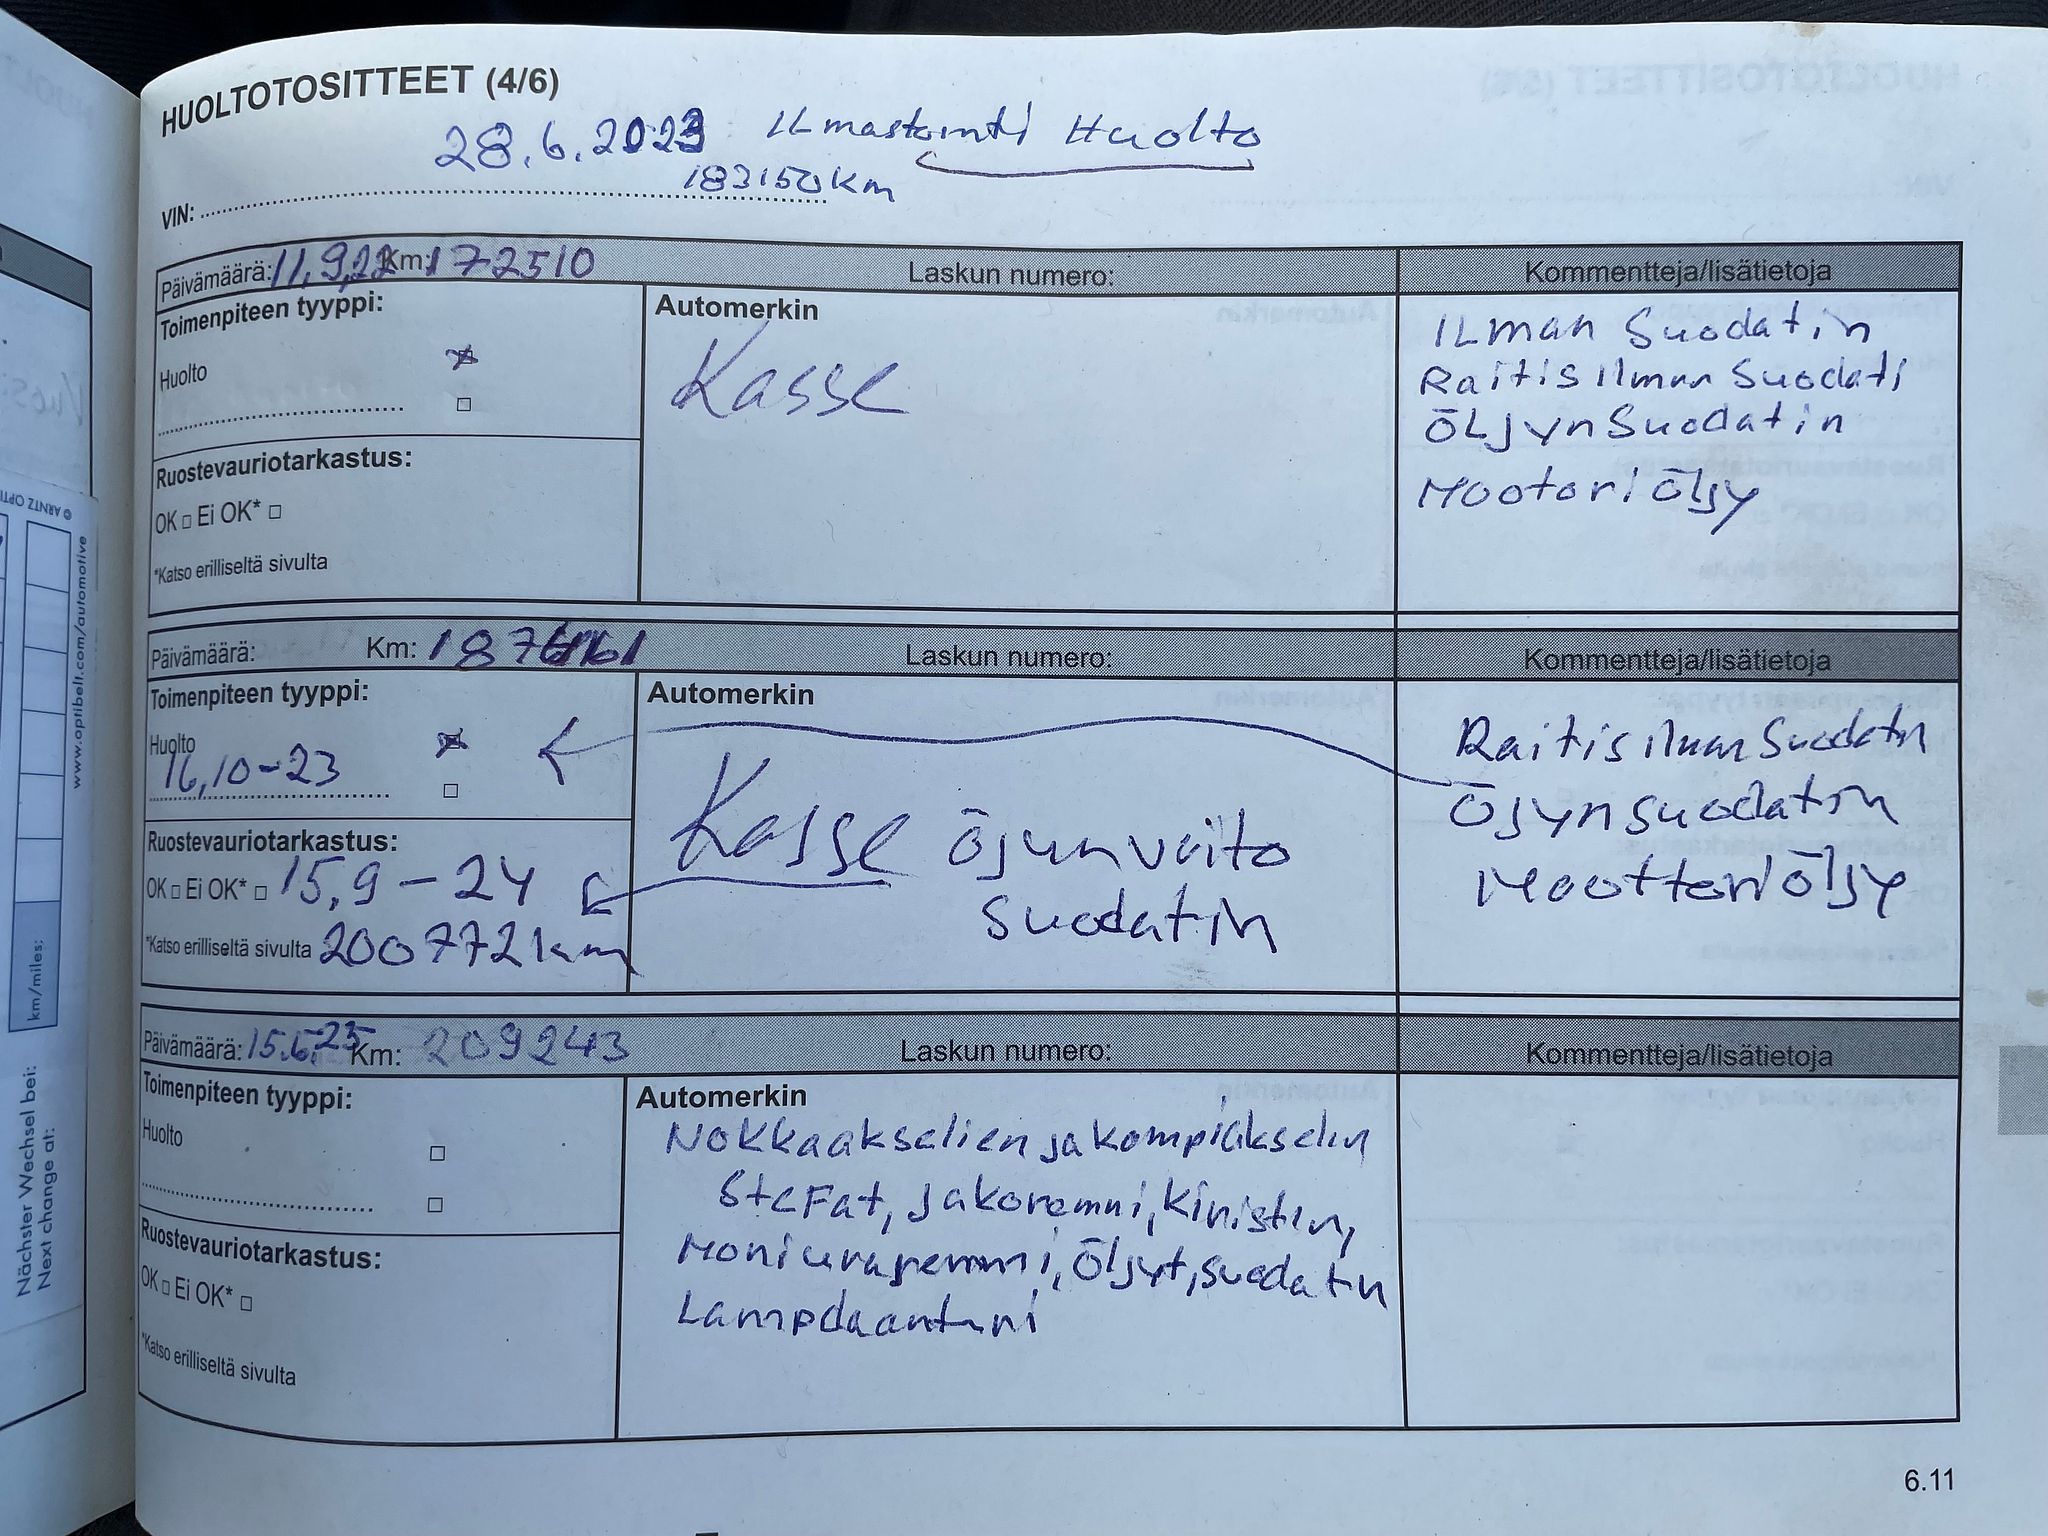 HUOLTOTOSITTEET (4/6)
28.6.2023 ILmastointi Huolto
183150km
VIN:
Päivämäärä: 11,9,22 Km: 172510 Laskun numero: Kommentteja/lisätietoja
Toimenpiteen tyyppi:
Huolto
Automerkin
Kasse
ILman Suodatin
Raitisilman Suodati
ÕLjyn Suodatin
Mootori õljy
Ruostevauriotarkastus:
OK □ Ei OK* □
*Katso erilliseltä sivulta
Päivämäärä: Km: Laskun numero: Kommentteja/lisätietoja
Toimenpiteen tyyppi:
Huolto
16,10-23
Automerkin
Kasse õjunvaito
suodatin
Raitisilman Suodatin
õjynsuodatin
Moottori õljy
Ruostevauriotarkastus:
OK □ Ei OK* □ 15,9-24
*Katso erilliseltä sivulta 200772km
Päivämäärä: 15.6.25 Km: 209243 Laskun numero: Kommentteja/lisätietoja
Toimenpiteen tyyppi:
Huolto
Automerkin
Nokkaakselien ja kampiakselin
Stefat, jakoremni, kiristin,
Moniuraremmi, õljyt, suodatin
Lampdaanturi
Ruostevauriotarkastus:
OK □ Ei OK* □
*Katso erilliseltä sivulta
6.11
© ARNTZ OPTI
www.optibelt.com/automotive
km/miles:
Nächster Wechsel bei:
Next change at: